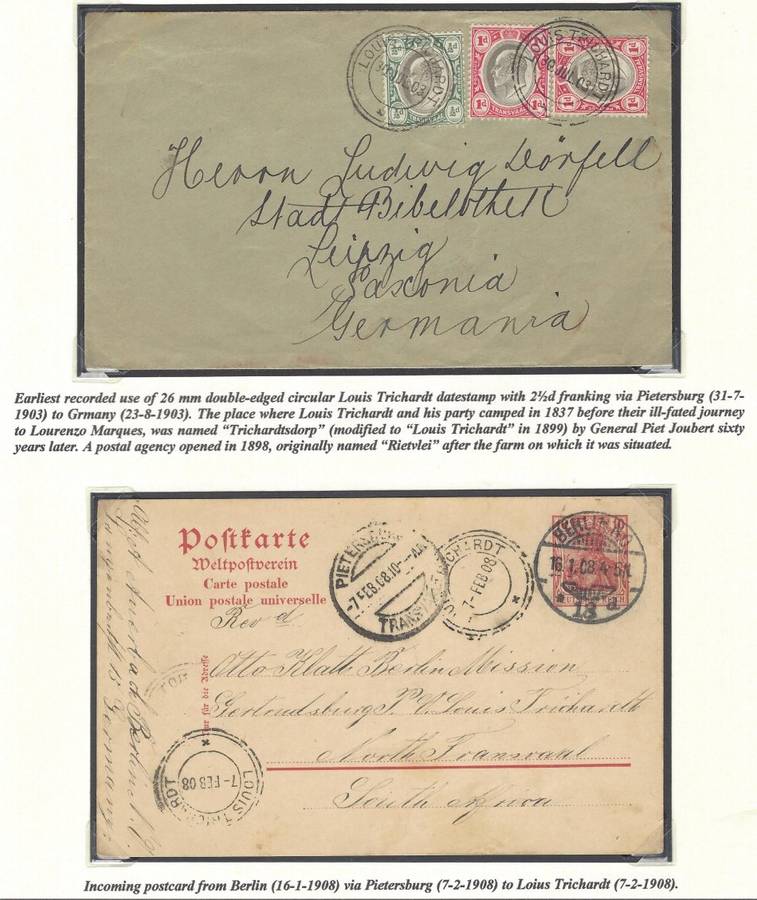 LOUIS TRICHARDT
30 JUL 03
½d ½d
1d 1d
TRANSVAAL
LOUIS TRICHARDT
30 JUL 03
1d 1d
Herrn Ludwig Dörfell
Stadt Bibelothek
Leipzig
Saxonia
Germania
Earliest recorded use of 26 mm double-edged circular Louis Trichardt datestamp with 2½d franking via Pietersburg (31-7-
1903) to Grmany (23-8-1903). The place where Louis Trichardt and his party camped in 1837 before their ill-fated journey
to Lourenzo Marques, was named “Trichardtsdorp” (modified to “Louis Trichardt” in 1899) by General Piet Joubert sixty
years later. A postal agency opened in 1898, originally named “Rietvlei” after the farm on which it was situated.
Postkarte
Weltpostverein
Carte postale
Union postale universelle
PIETERSBURG
7 FEB 08.10 - AM
TRANSVAAL
LOUIS TRICHARDT
7 - FEB 08
BERLIN N.O.
16.1.08.4-5N.
* 13 a
Rev d
Otto Klatt Berlin Mission
Gertrudsburg P. O. Louis Trichardt
North Transvaal
South Africa
Nur für die Adresse
LOUIS TRICHARDT
7 - FEB 08
Berlin
Germany
Incoming postcard from Berlin (16-1-1908) via Pietersburg (7-2-1908) to Loius Trichardt (7-2-1908).